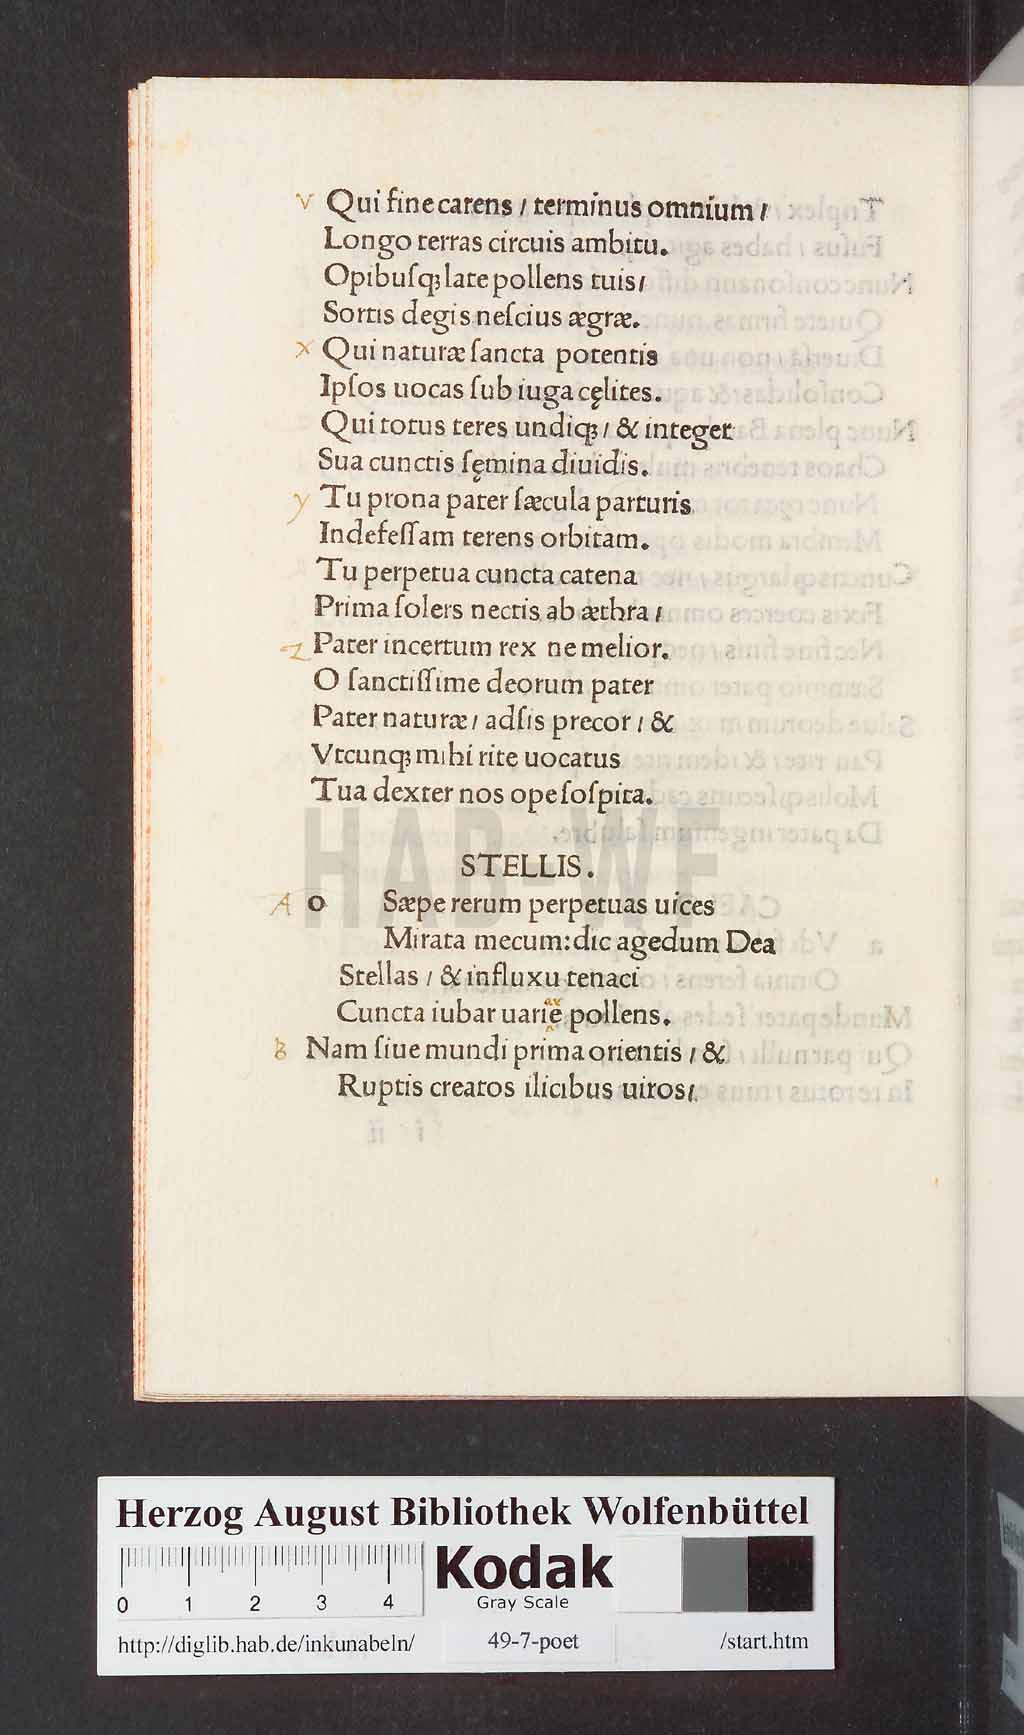 v Qui fine carens / terminus omnium /
Longo terras circuis ambitu.
Opibuſqꝫ late pollens tuis /
Sortis degis neſcius ægræ.
x Qui naturæ ſancta potentis
Ipſos uocas ſub iuga cęlites.
Qui totus teres undiqꝫ / & integer
Sua cunctis ſęmina diuidis.
y Tu prona pater ſæcula parturis
Indefeſſam terens orbitam.
Tu perpetua cuncta catena
Prima ſolers nectis ab æthra /
z Pater incertum rex ne melior.
O ſanctiſſime deorum pater
Pater naturæ / adſis precor / &
Vtcunqꝫ mihi rite uocatus
Tua dexter nos ope ſoſpita.
STELLIS.
A o Sæpe rerum perpetuas uices
Mirata mecum: dic agedum Dea
Stellas / & influxu tenaci
Cuncta iubar uarie pollens.
B Nam ſiue mundi prima orientis / &
Ruptis creatos ilicibus uiros /
HAB-WF
Herzog August Bibliothek Wolfenbüttel
0 1 2 3 4
Kodak
Gray Scale
http://diglib.hab.de/inkunabeln/ 49-7-poet /start.htm